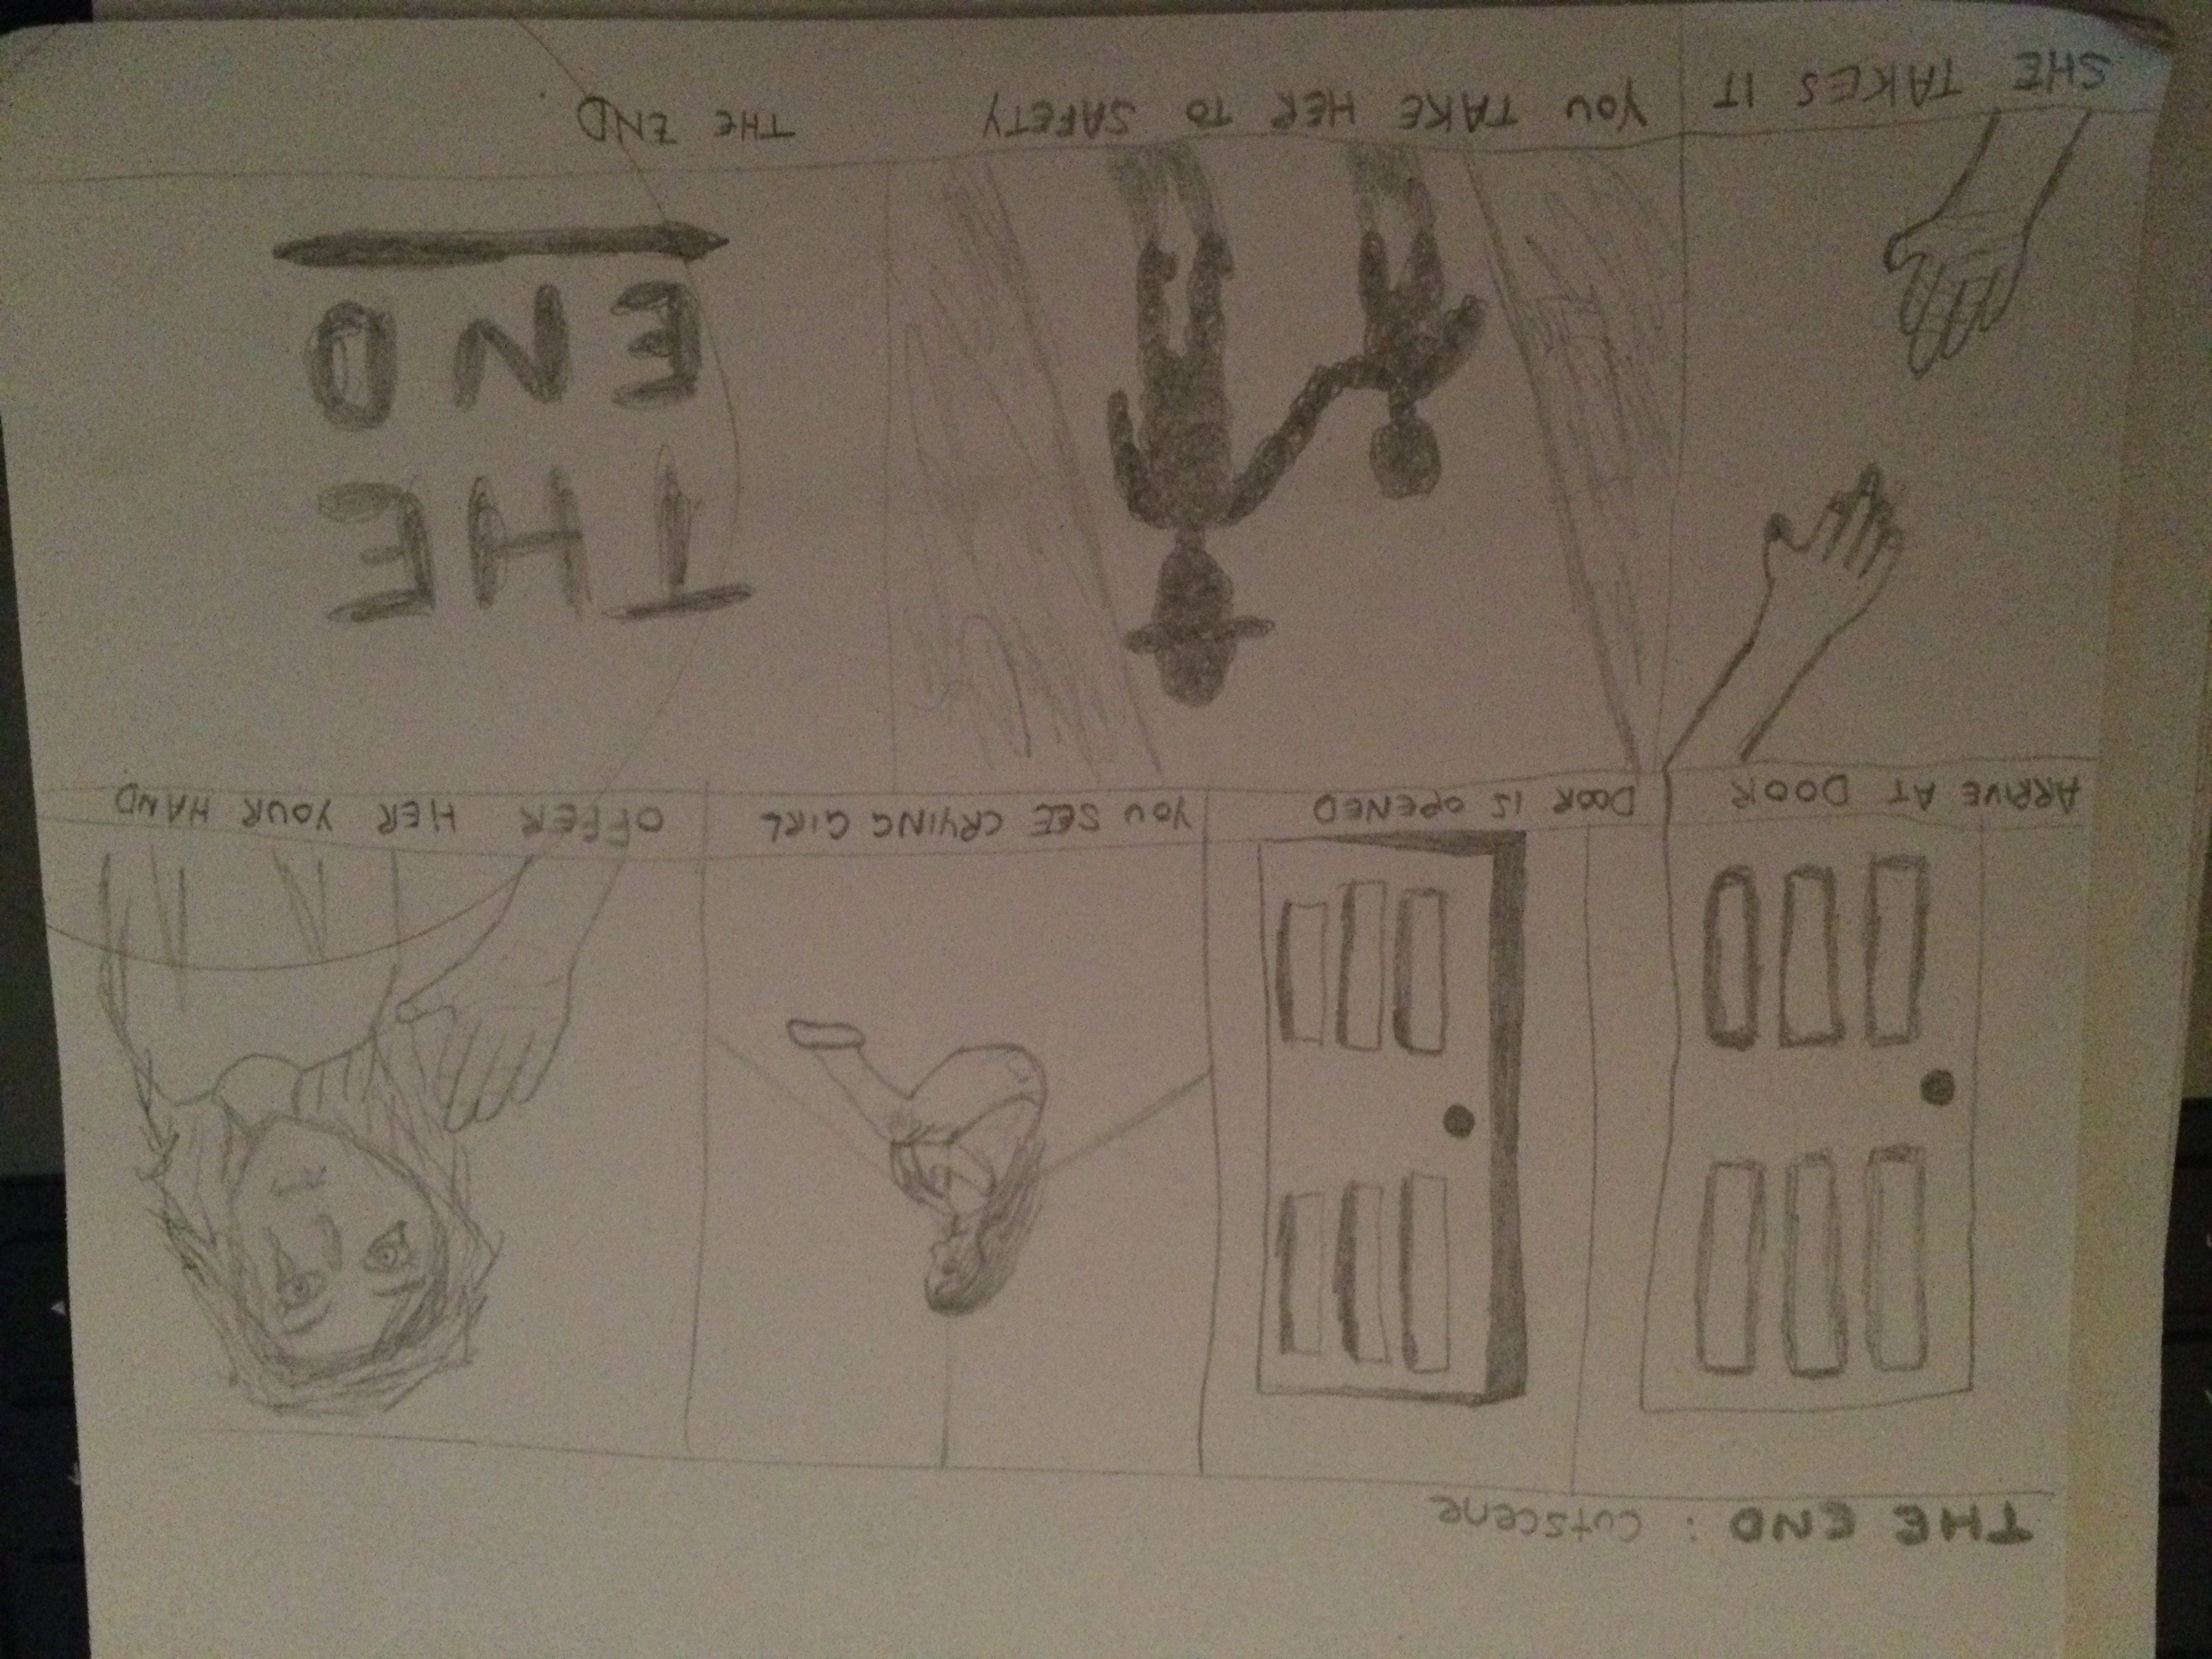 THE END: Cutscene
ARRIVE AT DOOR
DOOR IS OPENED
YOU SEE CRYING GIRL
OFFER HER YOUR HAND
SHE TAKES IT
YOU TAKE HER TO SAFETY
THE
END
THE END.